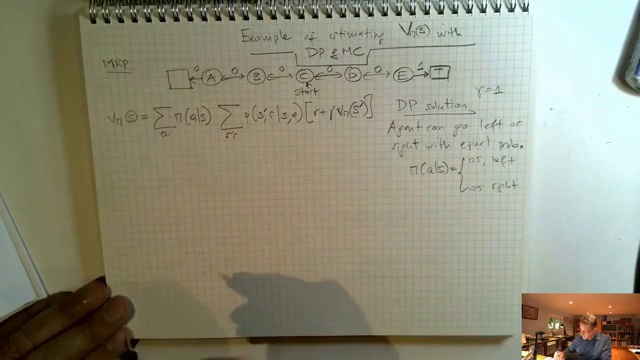 Example of estimating Vπ(s) with
DP & MC
MRP
0 0 0 0 0 1
A B C D E T
start
Vπ(s) = Σ π(a|s) Σ p(s',r|s,a) [r+γVπ(s')]
a s'r
DP solution γ=1
Agent can go left or
right with equal prob.
π(a|s)= { 0.5, left
0.5 right